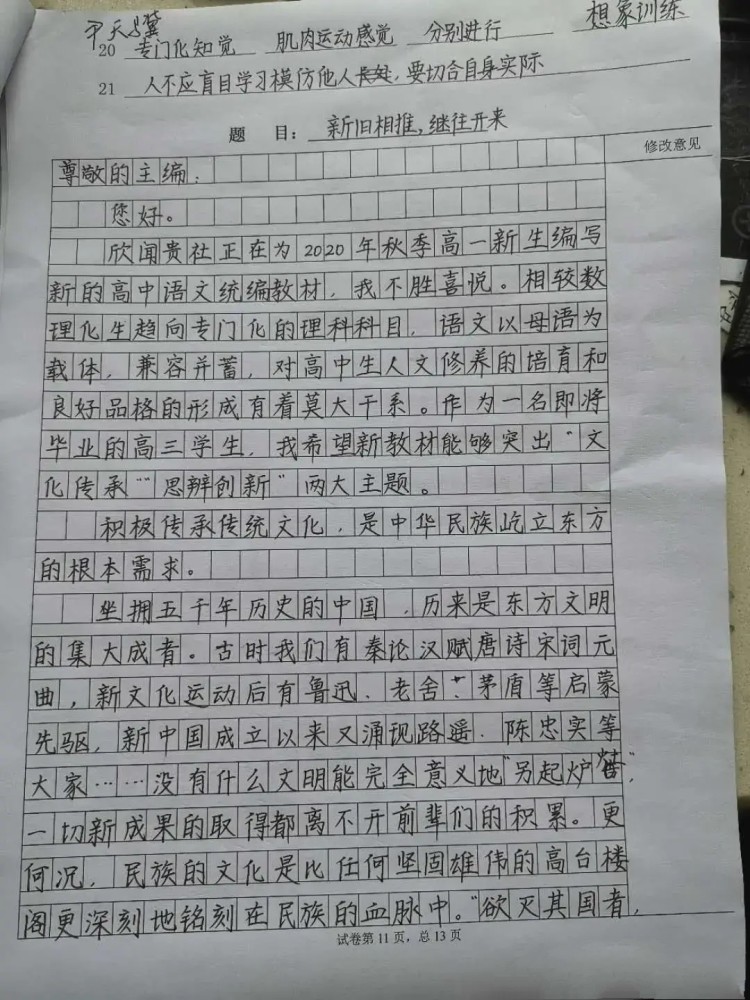 尹天骥
20 专门化知觉 肌肉运动感觉 分别进行 想象训练
21 人不应盲目学习模仿他人，要切合自身实际
题 目：新旧相推，继往开来
修改意见
尊敬的主编：
您好。
欣闻贵社正在为2020年秋季高一新生编写
新的高中语文统编教材，我不胜喜悦。相较数
理化生趋向专门化的理科科目，语文以母语为
载体，兼容并蓄，对高中生人文修养的培育和
良好品格的形成有着莫大干系。作为一名即将
毕业的高三学生，我希望新教材能够突出“文
化传承”“思辨创新”两大主题。
积极传承传统文化，是中华民族屹立东方
的根本需求。
坐拥五千年历史的中国，历来是东方文明
的集大成者。古时我们有秦论汉赋唐诗宋词元
曲，新文化运动后有鲁迅、老舍、茅盾等启蒙
先驱，新中国成立以来又涌现路遥、陈忠实等
大家……没有什么文明能完全意义地“另起炉灶”，
一切新成果的取得都离不开前辈们的积累。更
何况，民族的文化是比任何坚固雄伟的高台楼
阁更深刻地铭刻在民族的血脉中。“欲灭其国者，
试卷第11页，总13页